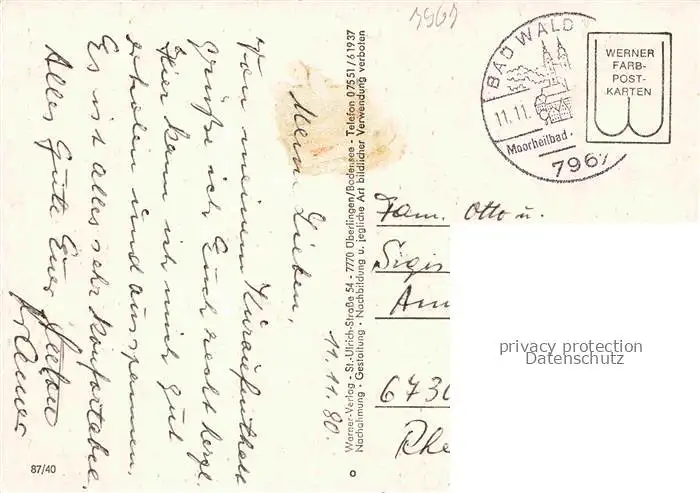 7967
BAD WALD
11.11.
Moorheilbad
7967
WERNER
FARB-
POST-
KARTEN
11.11.80.
Meine Lieben,
Von meinem Kuraufenthalt
grüße ich Euch recht herzl.
Hier kann ich mich gut
erholen und ausspannen.
Es ist alles sehr komfortabel.
Alles Gute Euer
Werner-Verlag - St.-Ulrich-Straße 54 - 7770 Überlingen/Bodensee - Telefon 07551/61937
Nachahmung - Gestaltung - Nachbildung u. jegliche Art bildlicher Verwendung verboten
Fam. Otto u.
Sigis
Am
6730
Rhe
privacy protection
Datenschutz
87/40